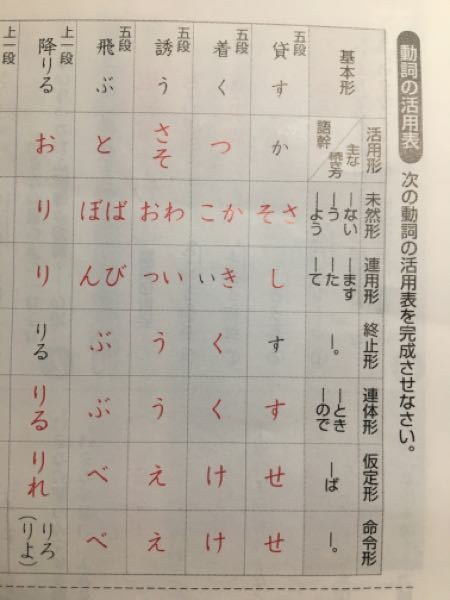 動詞の活用表
次の動詞の活用表を完成させなさい。
基本形
活用形
主な
続き方
語幹
未然形
―ない
―う
―よう
連用形
―ます
―た
―て
終止形
―。
連体形
―とき
―ので
仮定形
―ば
命令形
―。
五段
貸す
か
さ
そ
し
す
す
せ
せ
五段
着く
つ
か
こ
き
い
く
く
け
け
五段
誘う
さそ
わ
お
い
っ
う
う
え
え
五段
飛ぶ
と
ば
ぼ
び
ん
ぶ
ぶ
べ
べ
上一段
降りる
お
り
り
りる
りる
りれ
りろ
(りよ)
上一段